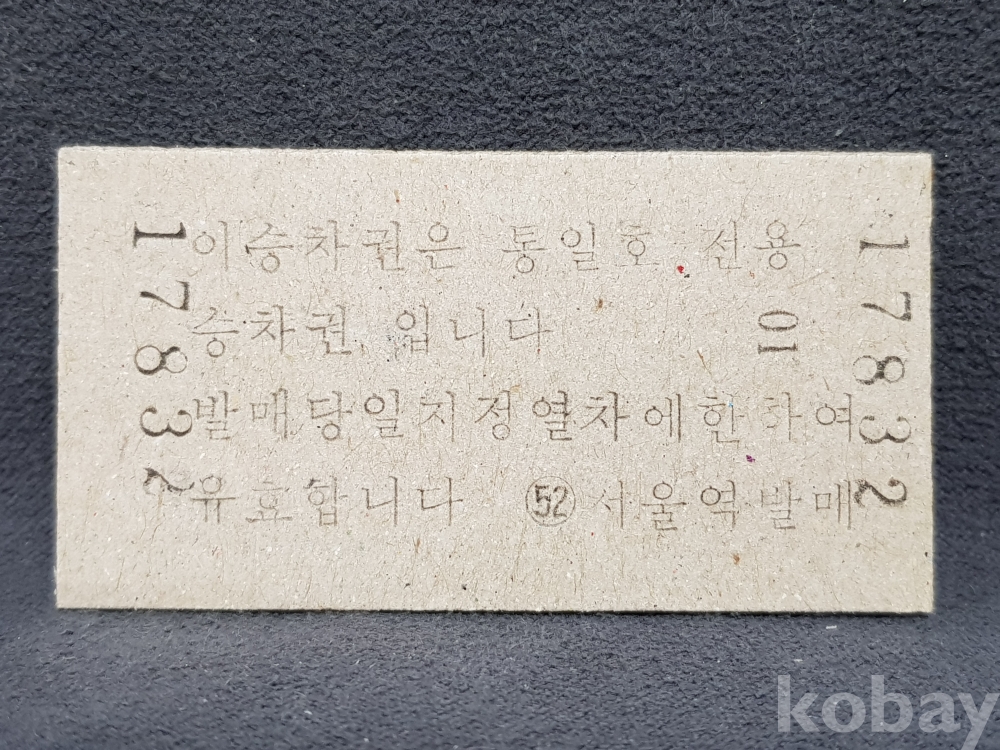 이승차권은 통일호 전용
승차권 입니다
01
발매당일지정열차에한하여
유효합니다 ㊾ 서울역발매
17832
17832
kobay